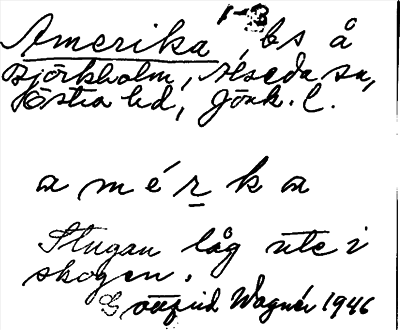 1-3
Amerika, bs å
Björkholm, Alseda sn,
Östra hd, Jönk. l.
a m é r k a
Stugan låg ute i
skogen.
Gottfrid Wagnér 1946